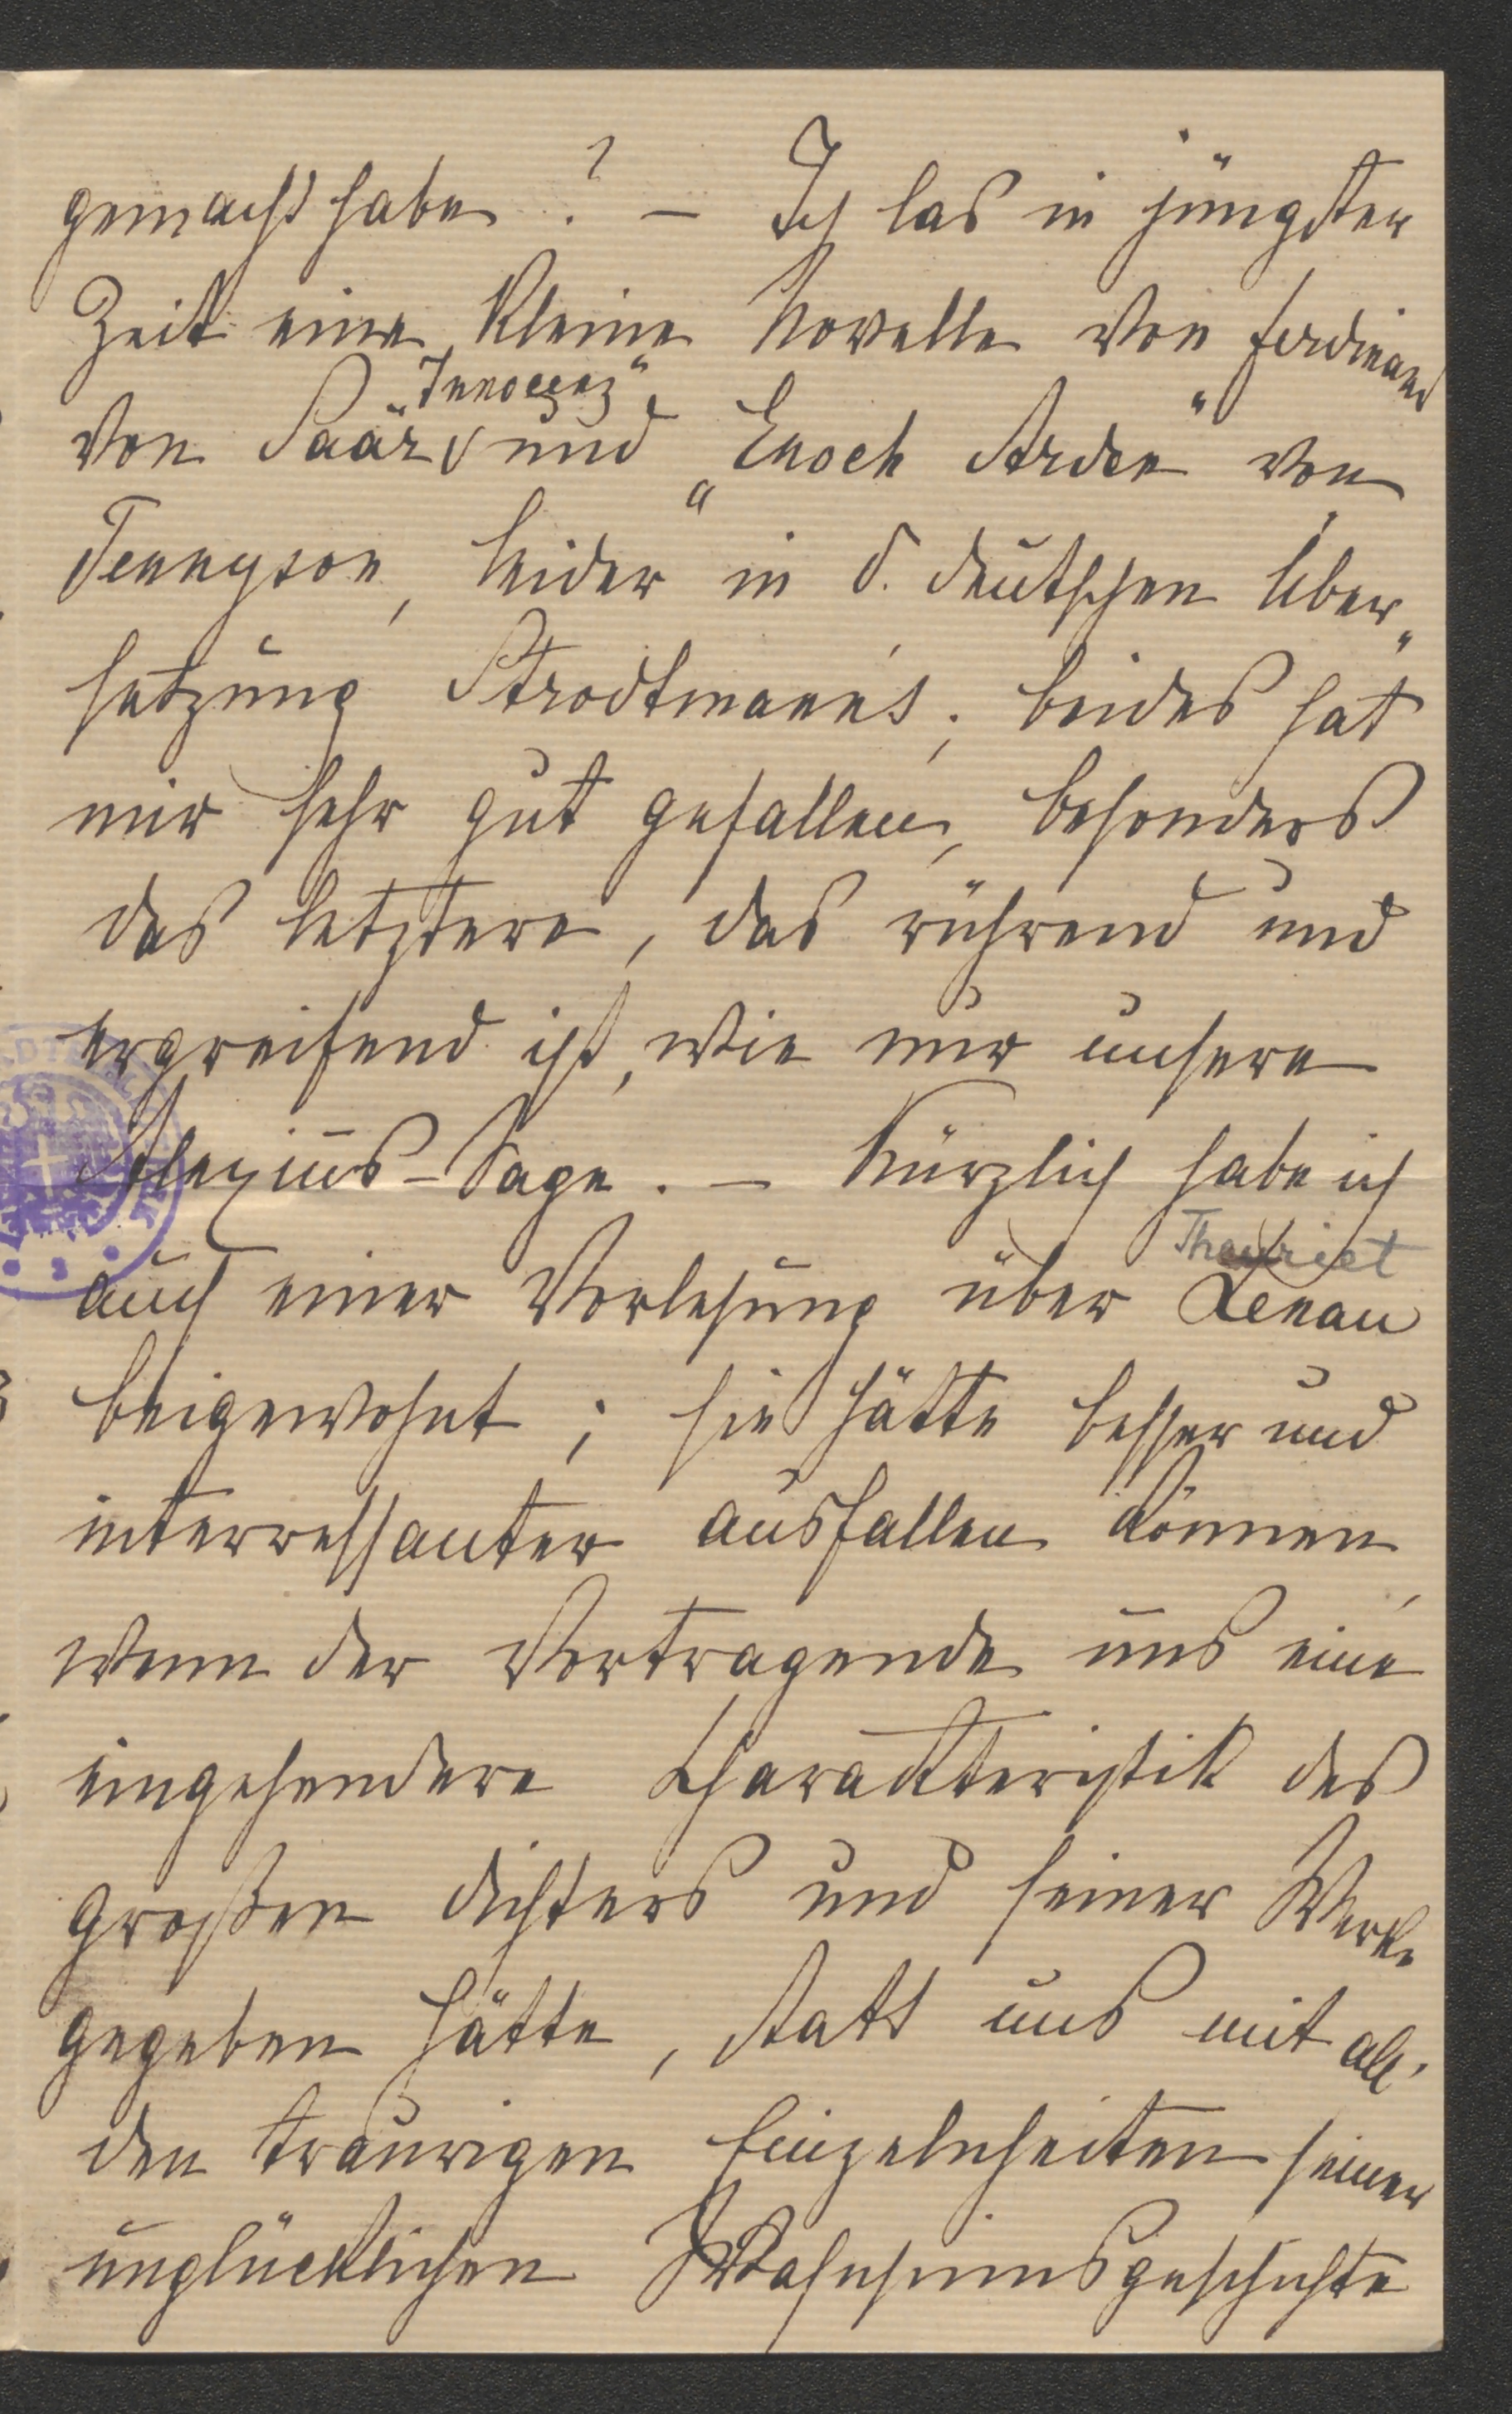 gemacht habe? – Ich las in jüngster
Zeit eine kleine Novelle von Ferdinand
von Saar „Innocenz“ und „Enoch Arden“ von
Tennyson, leider in d. deutschen Über„
setzung Strodtmann's; beides hat
mir sehr gut gefallen, besonders
das letztere, das rührend und
ergreifend ist, wie nur unsere
Alexius-Sage. – Kürzlich habe ich
Theuriet
auch einer Vorlesung über Lenau
beigewohnt; sie hätte besser und
interressanter ausfallen können,
wenn der Vortragende uns eine
eingehendere Charakteristik des
großen Dichters und seiner Werke
gegeben hätte, statt uns mit all'
den traurigen Einzelnheiten seiner
unglücklichen Wahnsinnsgeschichte